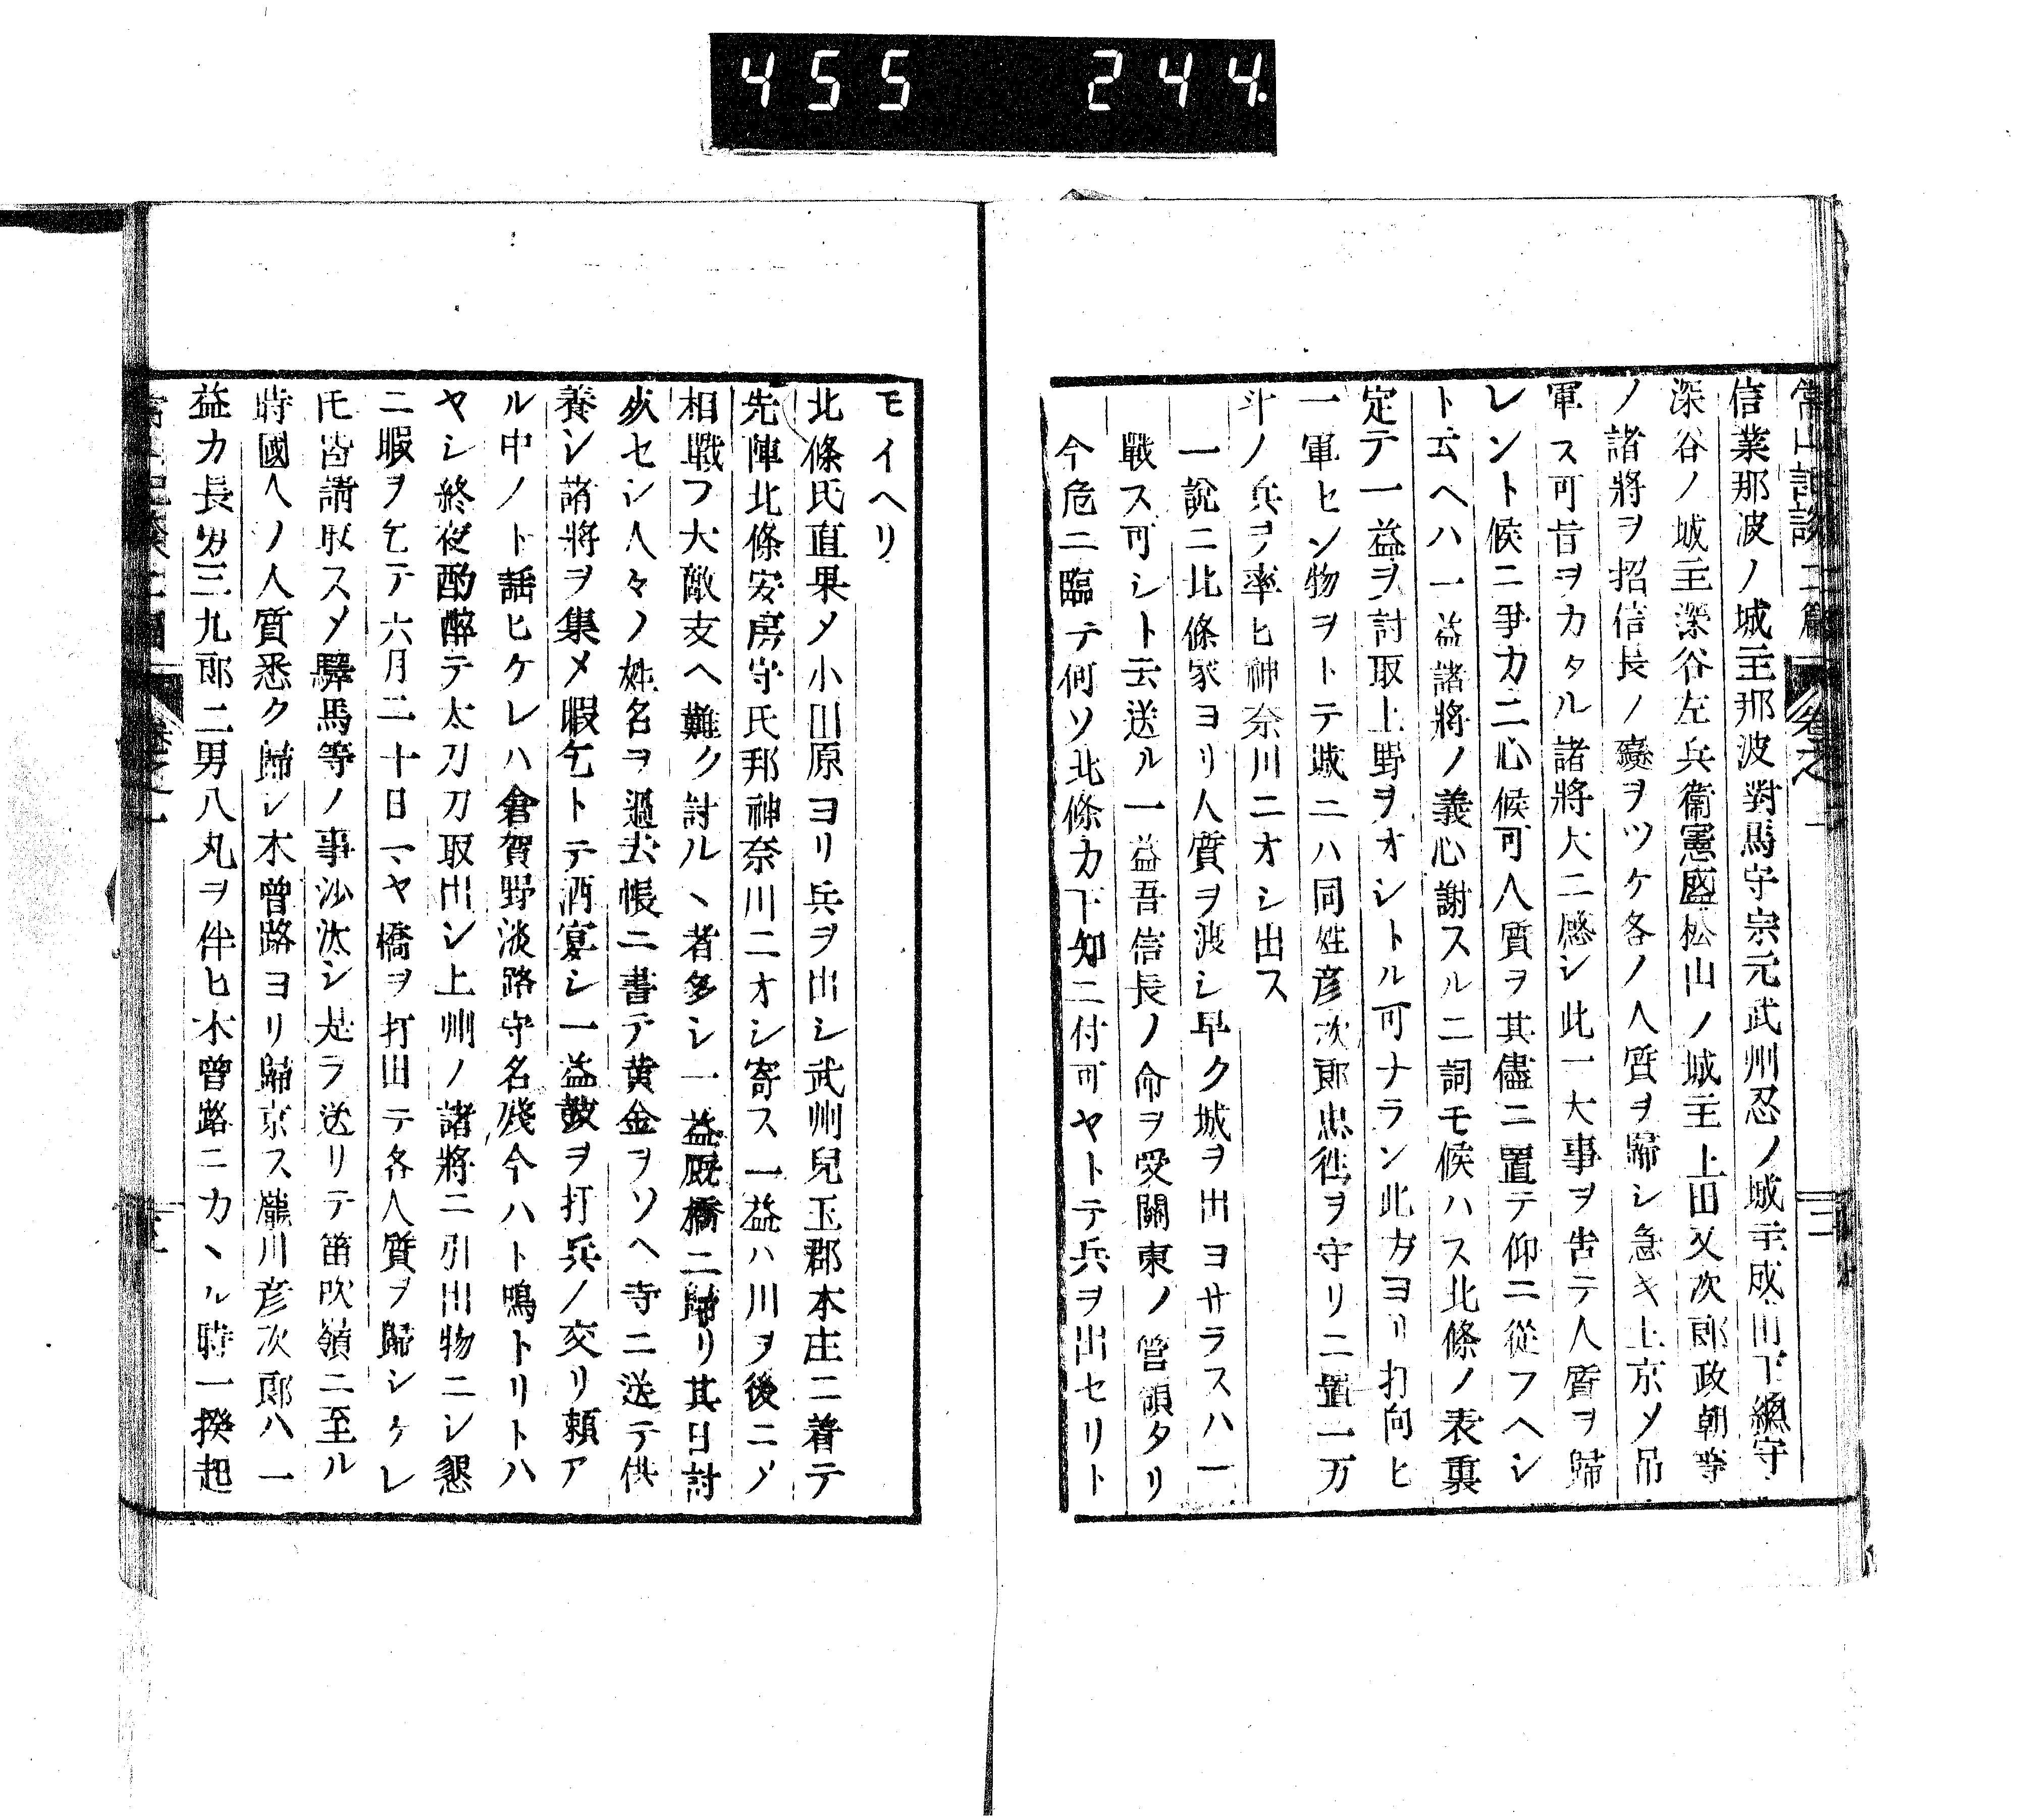 455 244
信業那波ノ城主那波對馬守宗元武州忍ノ城主成田下總守
深谷ノ城主深谷左兵衞憲盛松山ノ城主上田又次郎政朝等
ノ諸將ヲ招信長ノ變ヲツケ各ノ人質ヲ歸シ急キ上京メ吊
軍ス可旨ヲカタル諸將大ニ感シ此一大事ヲ吿テ人質ヲ歸
レント候ニ爭カ二心候可人質ヲ其儘ニ置テ仰ニ從フヘシ
ト云ヘハ一益諸將ノ義心謝スルニ詞モ候ハス北條ノ表裏
定テ一益ヲ討取上野ヲオシトル可ナラン此方ヨリ打向ヒ
一軍セン物ヲトテ城ニハ同姓彦次郎忠征ヲ守リニ置一万
斗ノ兵ヲ率ヒ神奈川ニオシ出ス
一說ニ北條家ヨリ人質ヲ渡シ早ク城ヲ出ヨサラスハ一
戰ス可シト云送ル一益吾信長ノ命ヲ受關東ノ管領タリ
今危ニ臨テ何ソ北條カ下知ニ付可ヤトテ兵ヲ出セリト
モイヘリ
北條氏直果メ小田原ヨリ兵ヲ出シ武州兒玉郡本庄ニ着テ
先陣北條安房守氏邦神奈川ニオシ寄ス一益ハ川ヲ後ニメ
相戰フ大敵支ヘ難ク討ルヽ者多シ一益厩橋ニ歸リ其日討
死セシ人々ノ姓名ヲ過去帳ニ書テ黃金ヲソヘ寺ニ送テ供
養シ諸將ヲ集メ暇乞トテ酒宴シ一益皷ヲ打兵ノ交リ賴ア
ル中ノト謡ヒケレハ倉賀野淡路守名殘今ハト鳴トリトハ
ヤシ終夜酌醉テ太刀刀取出シ上州ノ諸將ニ引出物ニシ懇
ニ暇ヲ乞テ六月二十日マヤ橋ヲ打出テ各人質ヲ歸シケレ
㐧皆請取スメ驛馬等ノ事沙汰シ是ヲ送リテ笛吹嶺ニ至ル
時國人ノ人質悉ク歸シ木曾路ヨリ歸京ス瀧川彦次郎ハ一
益カ長男三九郎二男八丸ヲ伴ヒ木曾路ニカヽル時一揆起